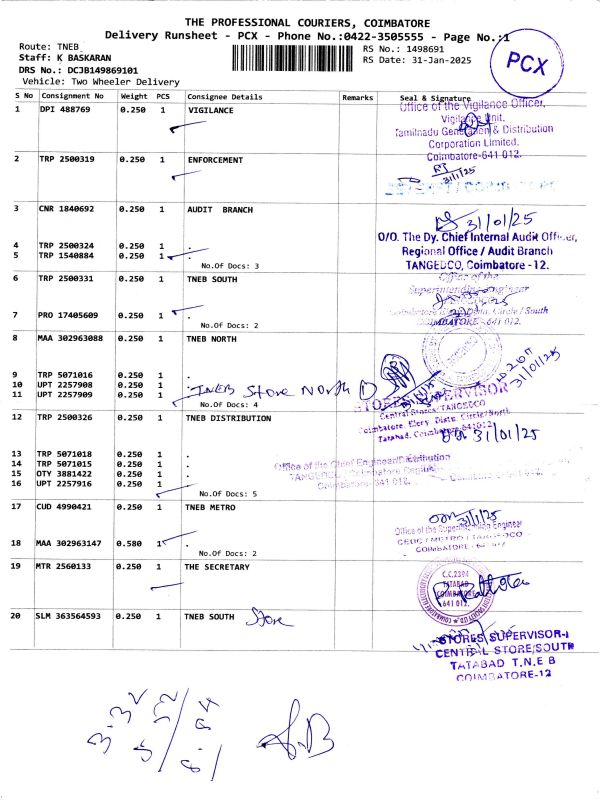 THE PROFESSIONAL COURIERS, COIMBATORE
Delivery Runsheet - PCX - Phone No.:0422-3505555 - Page No.:1
Route: TNEB
RS No.: 1498691
Staff: K BASKARAN
RS Date: 31-Jan-2025
DRS No.: DCJB149869101
Vehicle: Two Wheeler Delivery
PCX
S No Consignment No Weight PCS Consignee Details Remarks Seal & Signature
1 DPI 488769 0.250 1 VIGILANCE
Office of the Vigilance Officer,
Vigilance Unit,
Tamilnadu Generation & Distribution
Corporation Limited.
Coimbatore-641 012.
2 TRP 2500319 0.250 1 ENFORCEMENT
31/1/25
3 CNR 1840692 0.250 1 AUDIT BRANCH
31/01/25
O/O. The Dy. Chief Internal Audit Officer,
Regional Office / Audit Branch
TANGEDCO, Coimbatore - 12.
4 TRP 2500324 0.250 1 .
5 TRP 1540884 0.250 1 .
No.Of Docs: 3
6 TRP 2500331 0.250 1 TNEB SOUTH
Office of the
Superintending Engineer
Circle / South
COIMBATORE - 641 012.
7 PRO 17405609 0.250 1 .
No.Of Docs: 2
8 MAA 302963088 0.250 1 TNEB NORTH
31/01/25
9 TRP 5071016 0.250 1 .
10 UPT 2257908 0.250 1 .
11 UPT 2257909 0.250 1 .
TNEB Store North
No.Of Docs: 4
STORES SUPERVISOR
Central Stores/TANGEDCO
Coimbatore. Elecy. Distn. Circle/North
Tatabad, Coimbatore 641012
12 TRP 2500326 0.250 1 TNEB DISTRIBUTION
31/01/25
13 TRP 5071018 0.250 1 .
14 TRP 5071015 0.250 1 .
15 OTY 3881422 0.250 1 .
16 UPT 2257916 0.250 1 .
No.Of Docs: 5
Office of the Chief Engineer/Distribution
TANGEDCO / Coimbatore Region
Coimbatore- 641 012.
17 CUD 4990421 0.250 1 TNEB METRO
31/1/25
Office of the Superintending Engineer
CEDC / METRO / TANGEDCO
COIMBATORE - 641 012
18 MAA 302963147 0.580 1 .
No.Of Docs: 2
19 MTR 2560133 0.250 1 THE SECRETARY
C.C.2394
TATABAD
COIMBATORE
641 012.
20 SLM 363564593 0.250 1 TNEB SOUTH Store
STORES SUPERVISOR-I
CENTRAL STORE/SOUTH
TATABAD T.N.E B
COIMBATORE-12
S.B